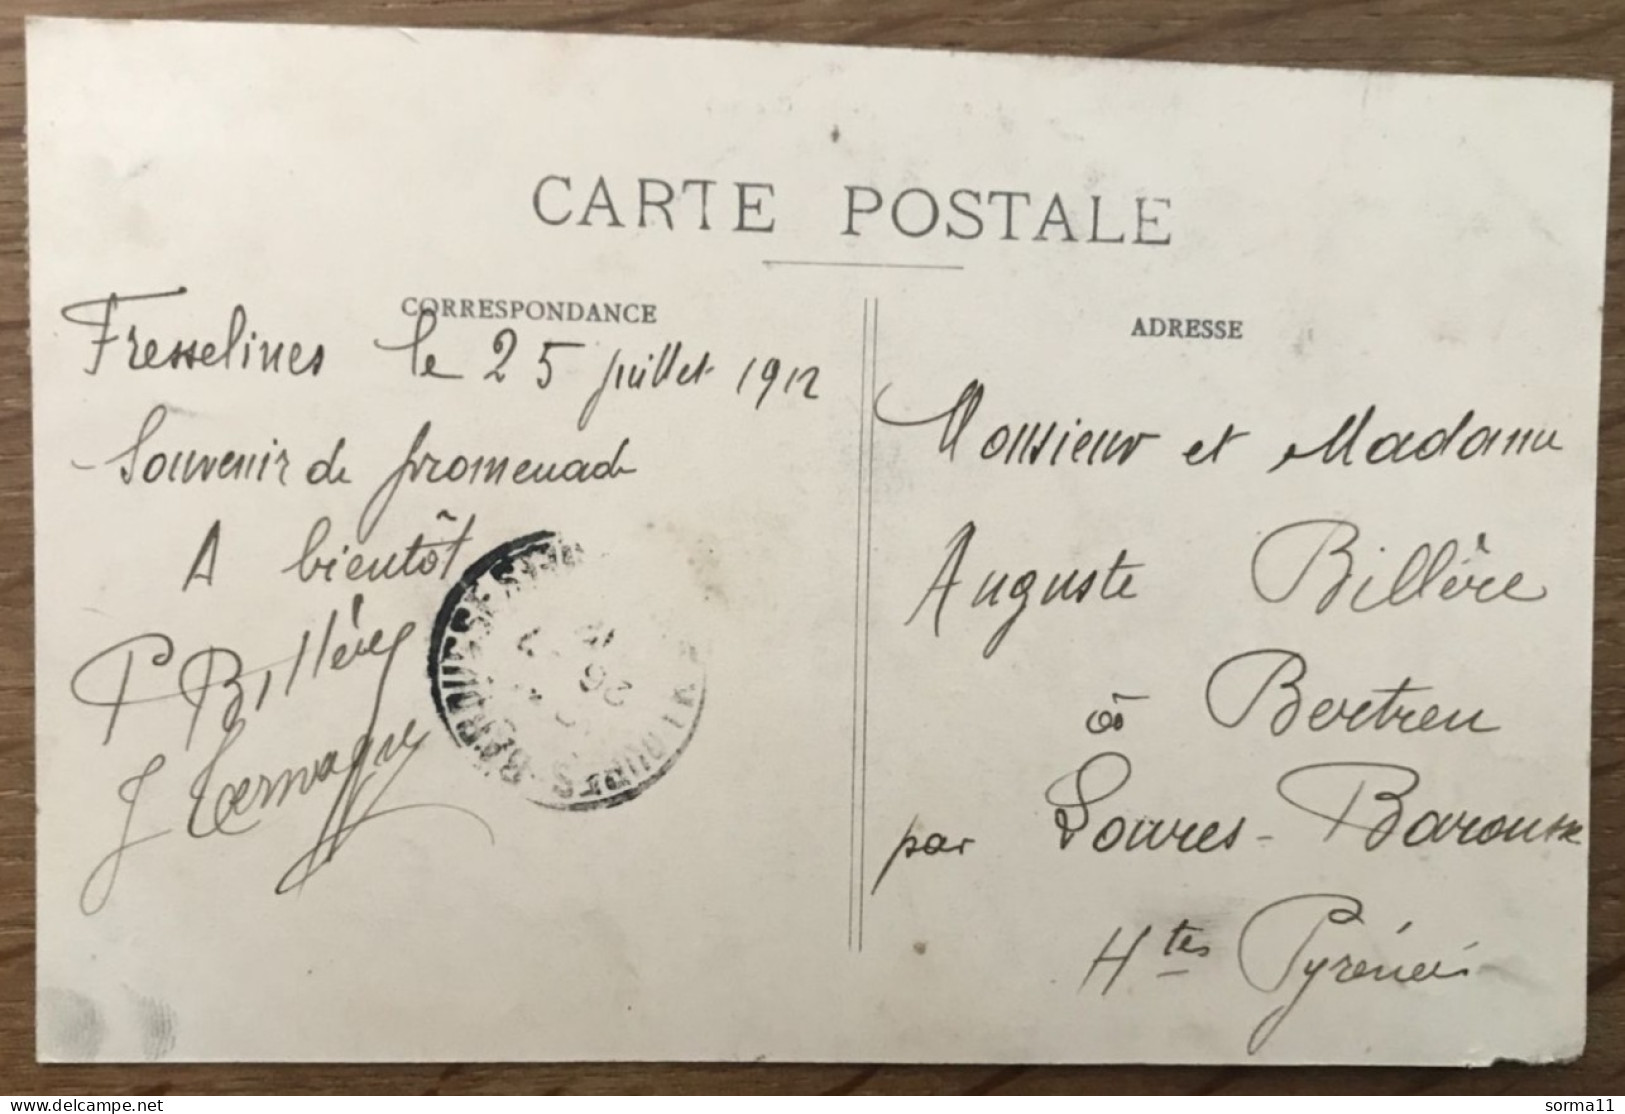 CARTE POSTALE
CORRESPONDANCE
Fresselines le 25 juillet 1912
Souvenir de promenade
A bientôt
P Billère
J
ADRESSE
Monsieur et Madame
Auguste Billère
à Bertren
par Loures-Barousse
Htes Pyrénées
LOURES-BAROUSSE
26
sorma11
delcampe.net